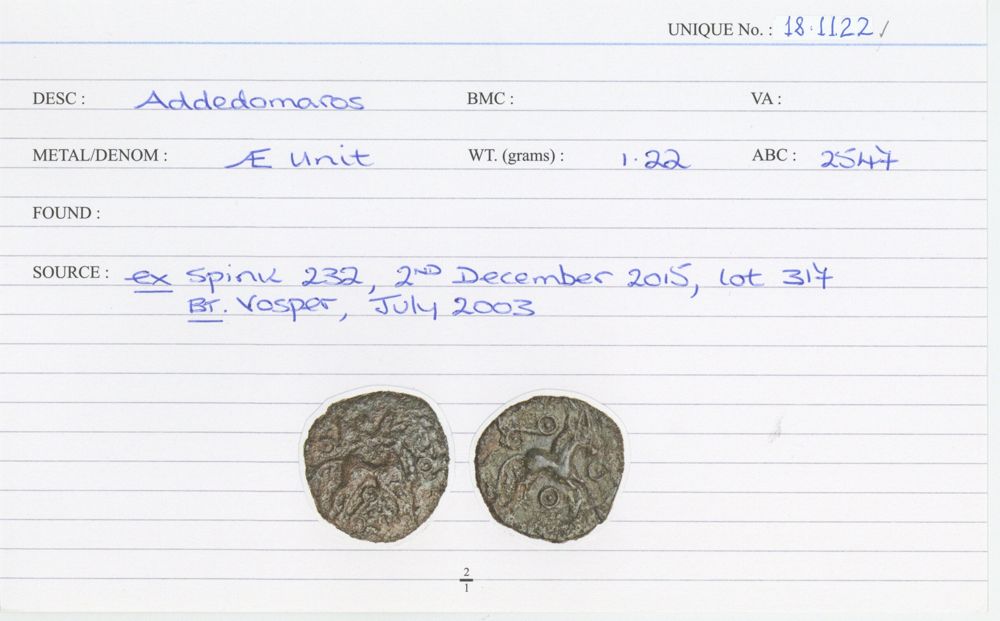 UNIQUE No. : 18.1122/
DESC : Addedomaros BMC : VA :
METAL/DENOM : Æ Unit WT. (grams) : 1.22 ABC : 2547
FOUND :
SOURCE : ex Spink 232, 2ND December 2015, lot 317
BT. Vosper, July 2003
2
1